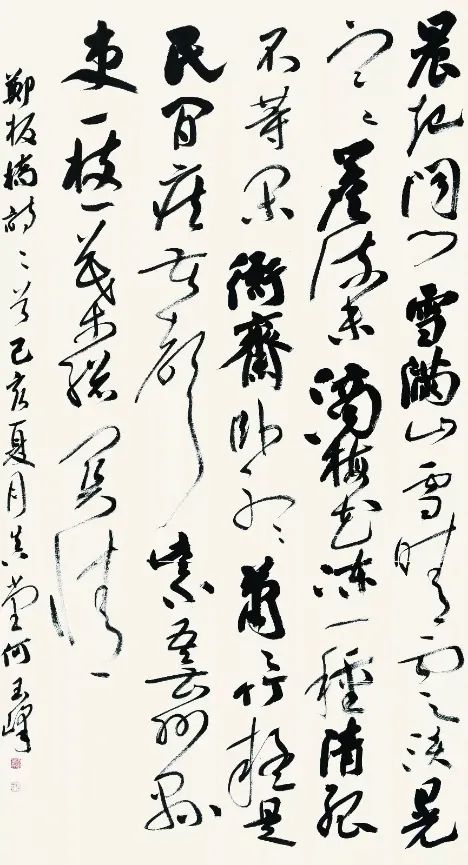 晨起開門雪滿山雪晴雲淡日光
寒簷流未滴梅花凍一種清孤
不等閑衙齋臥聽蕭蕭竹疑是
民間疾苦聲些小吾曹州縣
吏一枝一葉總關情
鄭板橋詩二首己亥夏月堂何玉峰